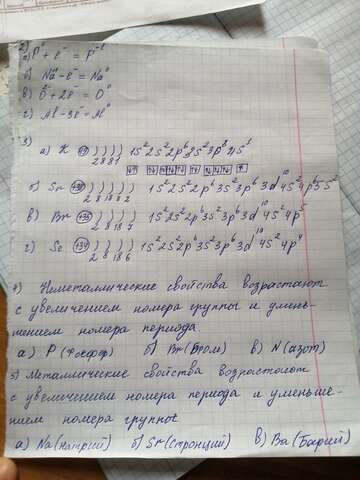 2)
а) F⁰ + e⁻ = F⁻¹
б) Na - e⁻ = Na⁰
в) O⁰ + 2e⁻ = O⁰
г) Al - 3e⁻ = Al⁰
3)
а) K +19 ) ) ) ) 1s² 2s² 2p⁶ 3s² 3p⁶ 4s¹
2 8 8 1
б) Sr +38 ) ) ) ) ) 1s² 2s² 2p⁶ 3s² 3p⁶ 3d¹⁰ 4s² 4p⁶ 5s²
2 8 18 8 2
в) Br +35 ) ) ) ) 1s² 2s² 2p⁶ 3s² 3p⁶ 3d¹⁰ 4s² 4p⁵
2 8 18 7
г) Se +34 ) ) ) ) 1s² 2s² 2p⁶ 3s² 3p⁶ 3d¹⁰ 4s² 4p⁴
2 8 18 6
4) Неметаллические свойства возрастают
с увеличением номера группы и умень-
шением номера периода.
а) P (Фосфор) б) Br (Бром) в) N (азот)
5) Металлические свойства возрастают
с увеличением номера периода и уменьше-
нием номера группы
а) Na (натрий) б) Sr (Стронций) в) Ba (Барий)